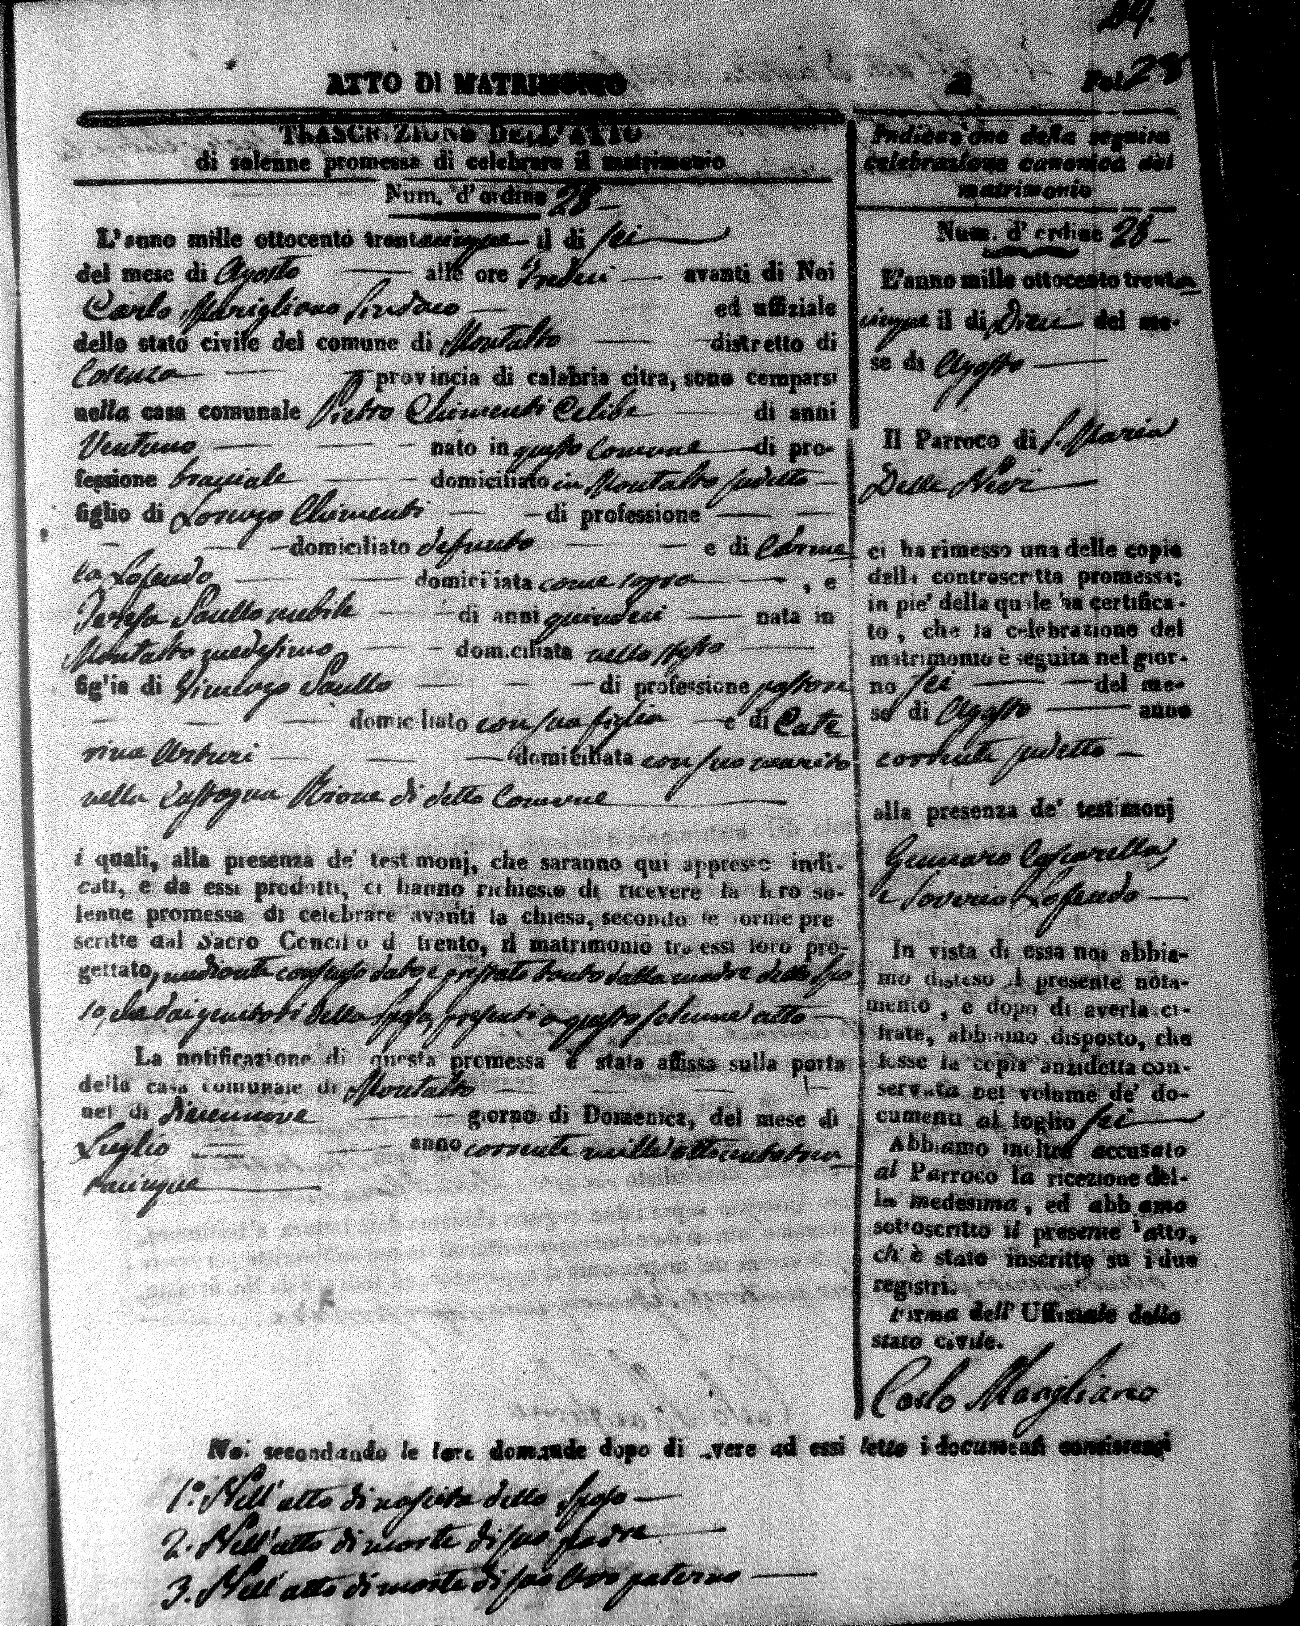 24.
ATTO DI MATRIMONIO
Fol. 28
TRASCRIZIONE DELL'ATTO
di solenne promessa di celebrare il matrimonio
Num. d'ordine 28
L'anno mille ottocento trentacinque il di sei
del mese di Agosto alle ore Tredici avanti di Noi
Carlo Marigliano Sindaco ed uffiziale
dello stato civile del comune di Montalto distretto di
Cosenza provincia di calabria citra, sono comparsi
nella casa comunale Pietro Chimenti Celibe di anni
Ventuno nato in questo Comune di pro-
fessione bracciale domiciliato in Montalto sudetto
figlio di Lorenzo Chimenti di professione
domiciliato defunto e di Carme
la Lofendo domiciliata come sopra , e
Teresa Saullo nubile di anni quindici nata in
Montalto medesimo domiciliata nello stesso
figlia di Vincenzo Saullo di professione pastore
domiciliato con sua figlia e di Cate
rina Arturi domiciliata con suo marito
nella Rione di detto Comune
i quali, alla presenza de' testimonj, che saranno qui appresso indi-
cati, e da essi prodotti, ci hanno richiesto di ricevere la loro so-
lenne promessa di celebrare avanti la chiesa, secondo le forme pre
scritte dal Sacro Concilio di trento, il matrimonio tra essi loro pro-
gettato, mediante consenso dato e prestato tanto dalla madre dello Spo
so, che dai genitori della Sposa, presenti a questo solenne atto
La notificazione di questa promessa è stata affissa sulla porta
della casa comunale di Montalto
nel di Diecinnove giorno di Domenica, del mese di
Luglio anno corrente mille ottocento tren
tacinque
Indicazione della seguita
celebrazione canonica del
matrimonio
Num. d'ordine 28
L'anno mille ottocento trenta
cinque il di Dieci del me-
se di Agosto
Il Parroco di S. Maria
Delle Nevi
ci ha rimesso una delle copie
della controscritta promessa;
in pie' della quale ha certifica-
to, che la celebrazione del
matrimonio è seguita nel gior-
no sei del me-
se di Agosto anno
corrente sudetto
alla presenza de' testimonj
Gennaro
e Saverio Lofendo
In vista di essa noi abbia-
mo disteso il presente nota-
mento, e dopo di averla ci-
frate, abbiamo disposto, che
fosse la copia anzidetta con-
servata nel volume de' do-
cumenti al foglio sei
Abbiamo inoltre accusato
al Parroco la ricezione del-
la medesima, ed abbiamo
sottoscritto il presente atto,
ch'è stato inscritto su i due
registri.
Firma dell'Uffiziale dello
stato civile.
Carlo Marigliano
Noi secondando le loro domande dopo di avere ad essi letto i documenti consistenti
1.° Nell'atto di nascita dello Sposo
2. Nell'atto di morte di suo padre
3. Nell'atto di morte di suo Avo paterno